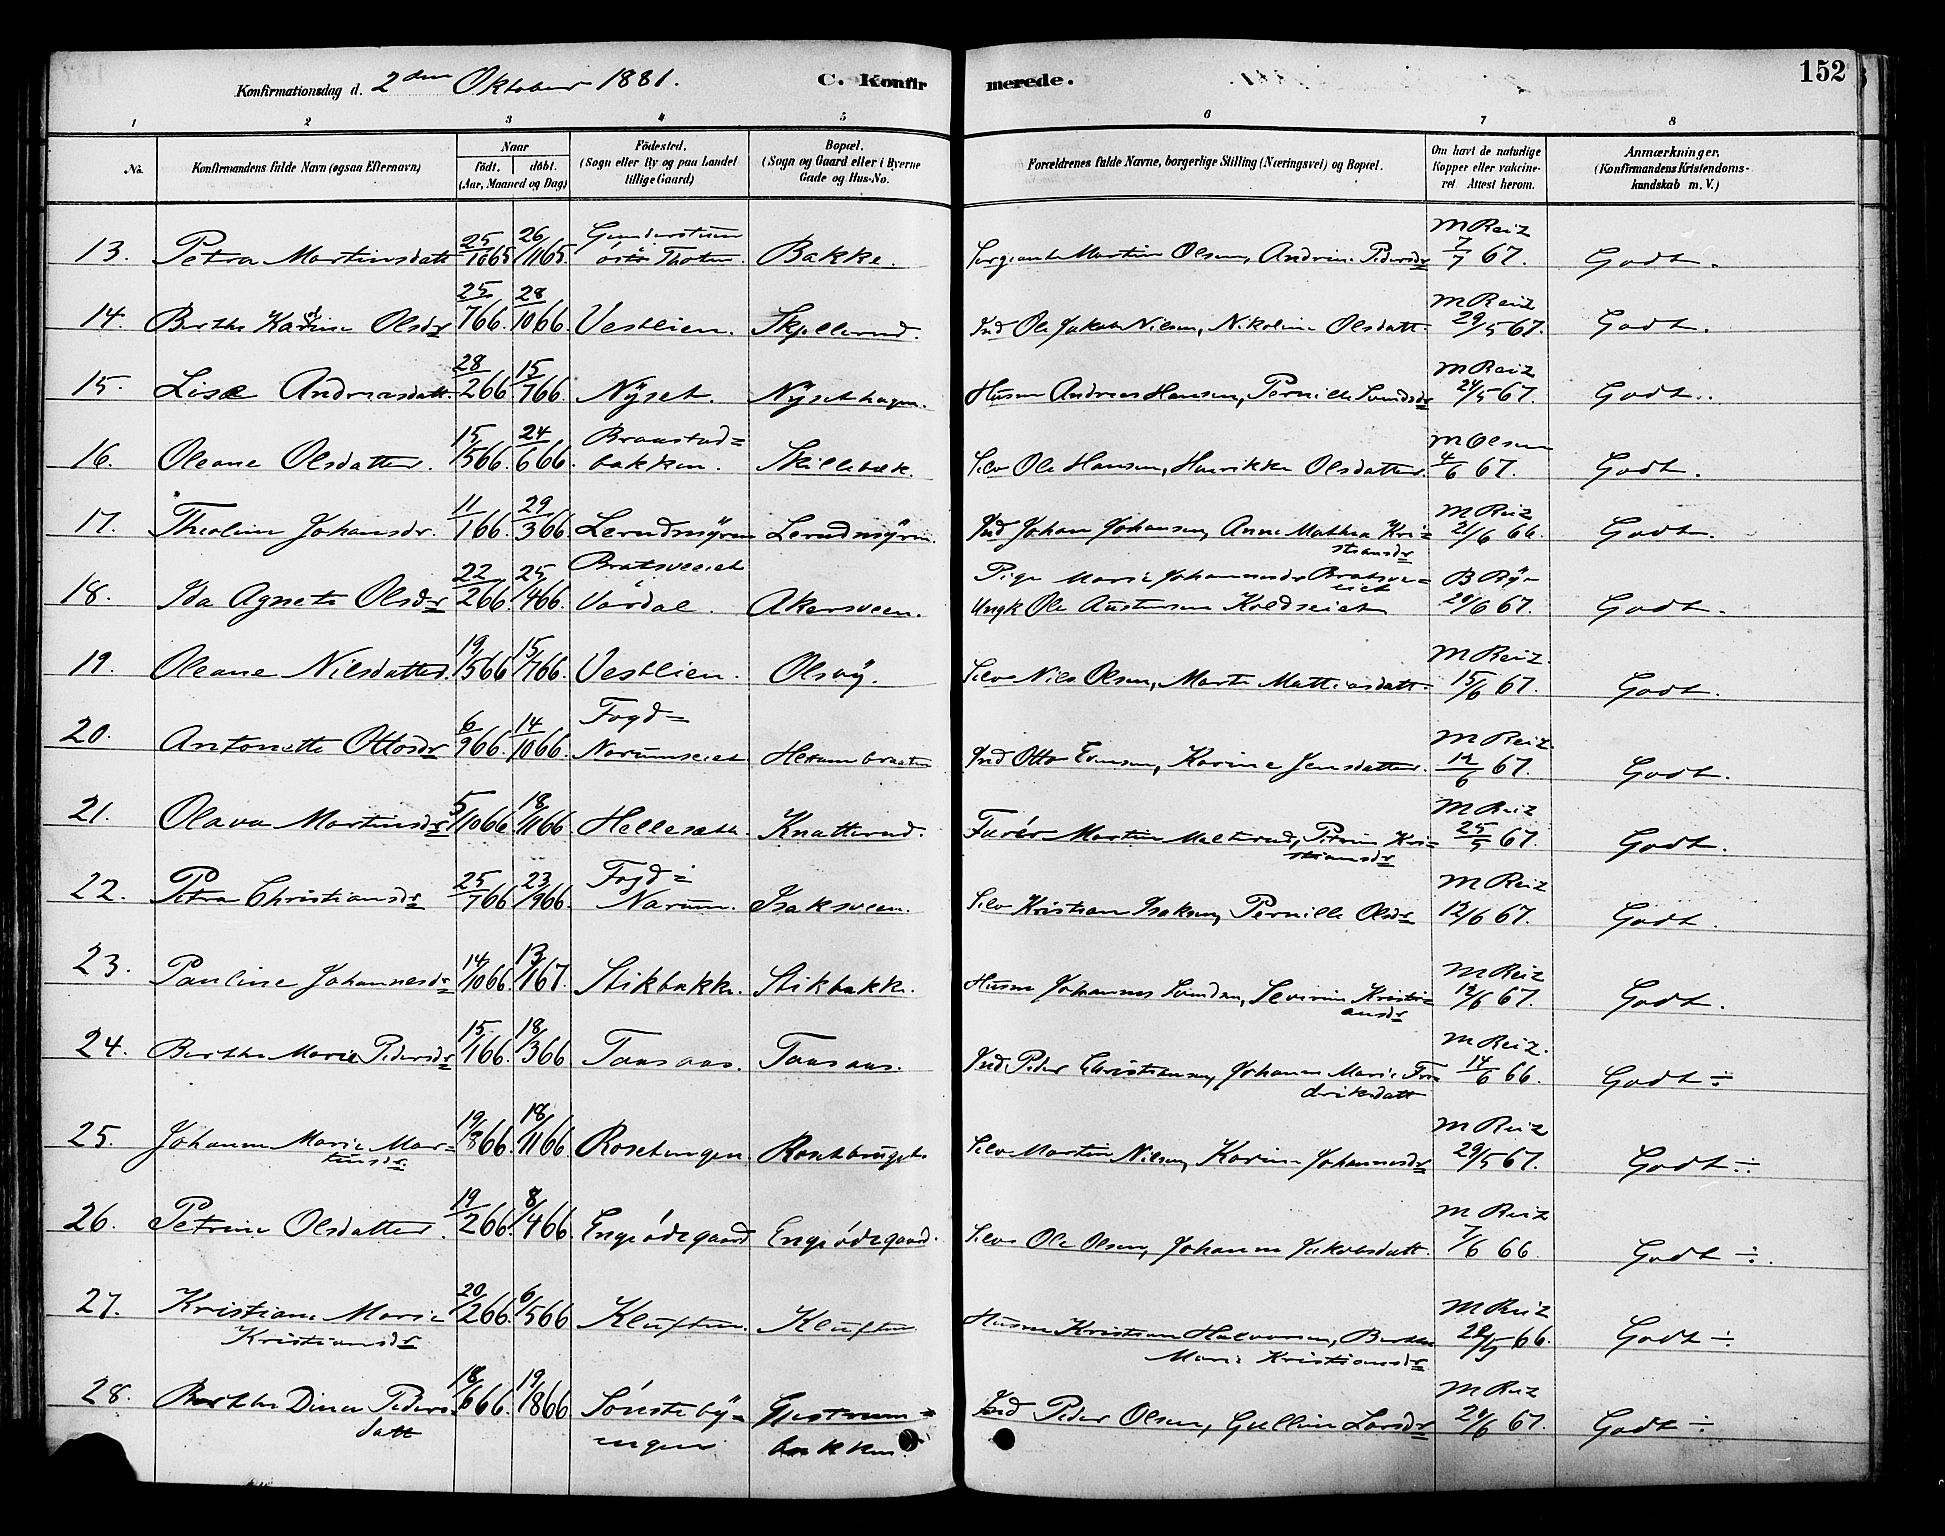 152
Konfirmationsdag d. 2den Oktober 1881. C. Konfirmerede.
1 2 3 4 5 6 7 8
No. Konfirmandens fulde Navn (ogsaa Efternavn) Naar födt. döbt. (Aar, Maaned og Dag) Födested. (Sogn eller By og paa Landet tillige Gaard) Bopæl. (Sogn og Gaard eller i Byerne Gade og Hus-No. Forældrenes fulde Navne, borgerlige Stilling (Næringsvei) og Bopæl. Om havt de naturlige Kopper eller vakcineret. Attest herom. Anmærkninger. (Konfirmandens Kristendomskundskab m. V.)
13. Petra Martinsdatt 25/10 65 26/11 65. östre Thoten. Bakke. Sergeante Martin Olsen, Andrine Pedersdr M Reiz 7/7 67. Godt.
14. Berthe Karine Olsdr 25/7 66. 28/10 66. Vestlien. Skjellerud. Ind Ole Jakob Nilsen, Nikoline Olsdatt. M Reiz 29/5 67. Godt.
15. Lise Andreasdatt. 28/2 66 15/7 66. Nÿset. Nÿsethagen. Husm Andreas Hansen, Pernille Svendsdr M Reiz 24/5 67. Godt.
16. Oleane Olsdatter. 15/5 66. 24/6 66. Braastad=bakken. Skillebæk. Selv Ole Hansen, Henrikke Olsdatter. M Olsen 4/6 67. Godt.
17. Theoline Johansdr. 11/1 66. 29/3 66. Lerudmÿren Lerudmÿren. Ind Johan Johansen, Anne Mathea Kri=stiansdr M Reiz 21/6 66. Godt.
18. Ida Agnete Olsdr 22/2 66. 25/4 66. Bratsveeiet Vardal. Akersveen. Pige Marie Johannesdr Bratsve=eiet Ungk Ole Austensen Koldseiet B Bÿe 20/6 67. Godt.
19. Oleane Nilsdatter. 19/5 66 15/7 66. Vestlien. Olsöÿ. Selv Nils Olsen, Marte Mathiasdatt. M Reiz. 15/6 67. Godt.
20. Antonette Ottosdr 6/9 66. 14/10 66. Fogd=Narumseiet Hexumbraaten Ind Otto Evensen, Karine Jensdatter. M Reiz. 12/6 67. Godt.
21. Olava Martinsdr 5/10 66 18/11 66. Hellesæth. Knatterud. Furér Martin Malterud, Petrine Kri=stiansdr M Reiz 25/5 67. Godt.
22. Petra Christiansdr 25/7 66 23/9 66. Fogd=Narum. Isaksveen. Selv Kristian Isaksen, Pernille Olsdr M Reiz 12/6 67. Godt.
23. Pauline Johannesdr 14/10 66. 13/1 67. Stikbakke. Stikbakke. Husm Johannes Svendsen, Severine Kristi=ansdr M Reiz 12/6 67. Godt.
24. Berthe Marie Pedersdr 15/1 66. 18/3 66 Taasaas. Taasaas. Ind Peder Christiansen, Johanne Marie Fre=driksdatt M Reiz. 14/6 66. Godt ÷
25. Johanne Marie Mar=tinsdr 19/8 66. 18/11 66 Rosetengen. Selv Martin Nilsen, Karine Johannesdr M Reiz 29/5 67. Godt ÷
26. Petrine Olsdatter. 19/2 66. 8/4 66. Engeödegaard Engeödegaard. Selv Ole Olsen, Johanne Jakobsdatt. M Reiz 7/6 66. Godt ÷.
27. Kristiane Marie Kristiansdr 20/2 66. 6/5 66 Kluften. Kluften Husm Kristian Halvorsen, Berthe Marie Kristiansdr M Reiz 28/5 66. Godt ÷
28. Berthe Dinea Peders=datt 18/6 66. 19/8 66 Sönstebÿ=engen Gjestrum=bakken. Ind Peder Olsen, Gulline Larsdr M Reiz 20/6 67. Godt ÷